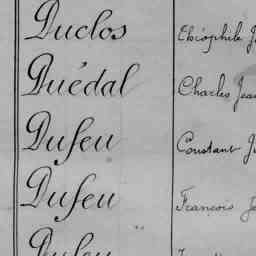 Duclos Théophile J
Quédal Charles Jean
Dufeu Constant J
Dufeu François Je
Dufeu